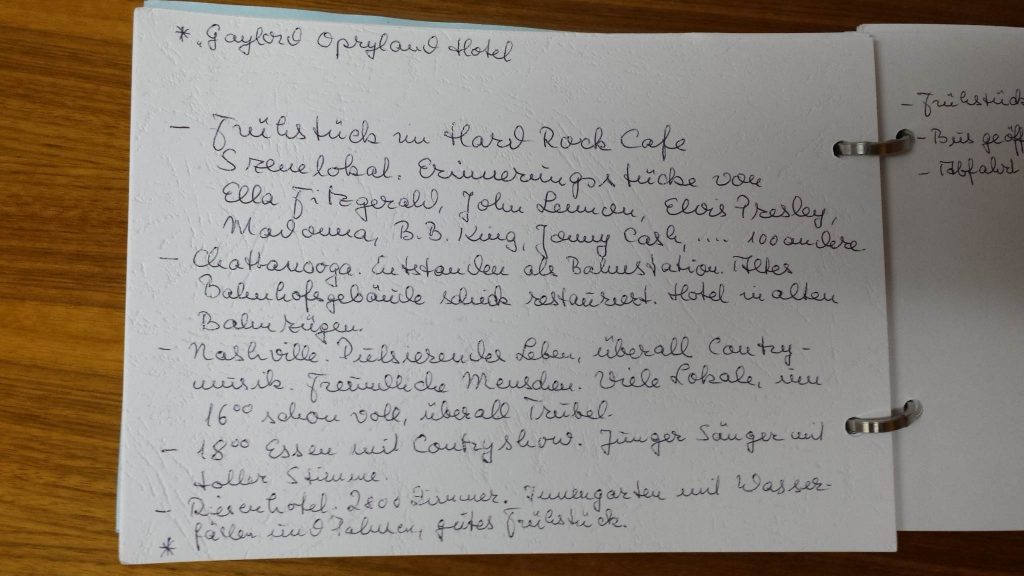 * Gaylord Opryland Hotel
- Frühstück im Hard Rock Cafe
Szenelokal. Erinnerungsstücke von
Ella Fitzgerald, John Lennon, Elvis Presley,
Madonna, B.B. King, Jonny Cash, .... 100 andere
- Chattanooga. Entstanden als Bahnstation. Altes
Bahnhofsgebäude schick restauriert. Hotel in alten
Bahnzügen.
- Nashville. Pulsierendes Leben, überall Contry-
musik. Freundliche Menschen. Viele Lokale, um
16⁰⁰ schon voll, überall Trubel.
- 18⁰⁰ Essen mit Contryshow. Junger Sänger mit
toller Stimme.
- Riesenhotel. 2800 Zimmer. Innengarten mit Wasser-
fällen und Palmen, gutes Frühstück.
*
- Frühstück
- Bus geöff
- Abfahrt